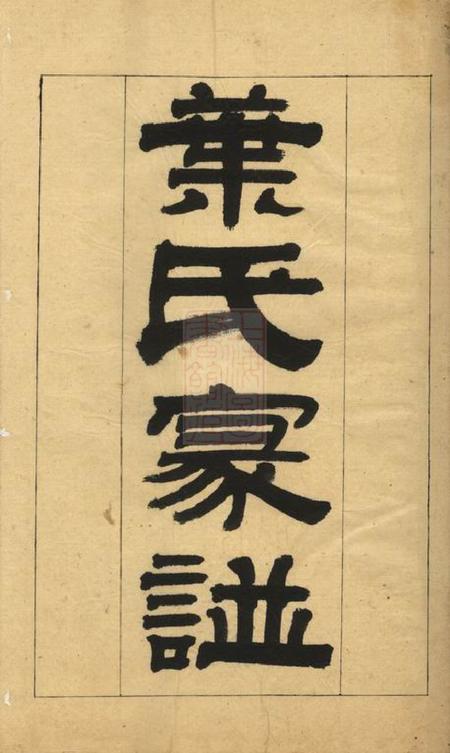 葉氏家譜